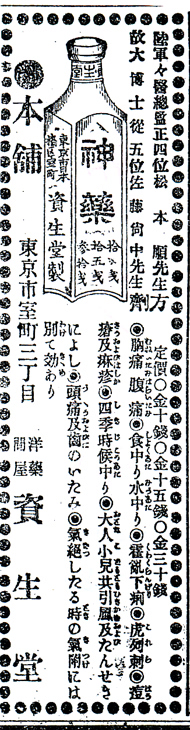 陸軍々醫總監正四位松本順先生方
故大博士從五位佐藤尚中先生劑
定價◎金十錢◎金十五錢◎金三十錢
◎胸痛腹痛◎食中り水中り◎霍亂下痢◎虎列刺◎痘
瘡及麻疹◎四季時候中り◎大人小兒共引風及たんせき
によし◎頭痛及歯のいたみ◎氣絶したる時の氣附には
別て効あり
神藥
拾戋
拾五戋
参拾戋
東京市日本
橋區室町
資生堂製
本舗
東京市室町三丁目
洋藥
問屋
資生堂